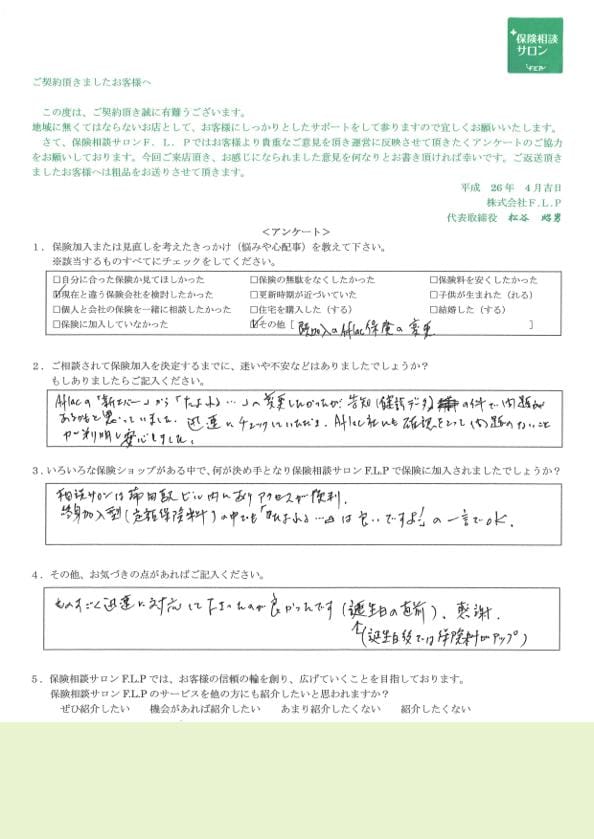 保険相談
サロン
F.L.P
ご契約頂きましたお客様へ
この度は、ご契約頂き誠に有難うございます。
地域に無くてはならないお店として、お客様にしっかりとしたサポートをして参りますので宜しくお願いいたします。
さて、保険相談サロンF.L.Pではお客様より貴重なご意見を頂き運営に反映させて頂きたくアンケートのご協力
をお願いしております。今回ご来店頂き、お感じになられました意見を何なりとお書き頂ければ幸いです。ご返送頂き
ましたお客様へは粗品をお送りさせて頂きます。
平成 26年 4月吉日
株式会社F.L.P
代表取締役 松谷 昭男
＜アンケート＞
1．保険加入または見直しを考えたきっかけ（悩みや心配事）を教えて下さい。
※該当するものすべてにチェックをしてください。
□自分に合った保険か見てほしかった □保険の無駄をなくしたかった □保険料を安くしたかった
☑現在と違う保険会社を検討したかった □更新時期が近づいていた □子供が生まれた（れる）
□個人と会社の保険を一緒に相談したかった □住宅を購入した（する） □結婚した（する）
□保険に加入していなかった ☑その他 [ 既加入のAflac保険の変更 ]
2．ご相談されて保険加入を決定するまでに、迷いや不安などはありましたでしょうか？
もしありましたらご記入ください。
Aflacの「新エバー」から「たよれる…」への変更したかったが、告知(健診データ)の件で問題が
あるかと思っていました。迅速にチェックしていただき、Aflac社にも確認をとって問題のないこと
が判明し安心しました。
3．いろいろな保険ショップがある中で、何が決め手となり保険相談サロンF.L.Pで保険に加入されましたでしょうか？
相談サロンは ビル内にありアクセスが便利。
終身加入型(定額保険料)の中でも「たよれる…」は良いですよ！の一言でOK.
4．その他、お気づきの点があればご記入ください。
ものすごく迅速に対応して下さったのが良かったです(誕生日の直前)、感謝.
↑(誕生日後では保険料がアップ)
5．保険相談サロンF.L.Pでは、お客様の信頼の輪を創り、広げていくことを目指しております。
保険相談サロンF.L.Pのサービスを他の方にも紹介したいと思われますか？
ぜひ紹介したい 機会があれば紹介したい あまり紹介したくない 紹介したくない